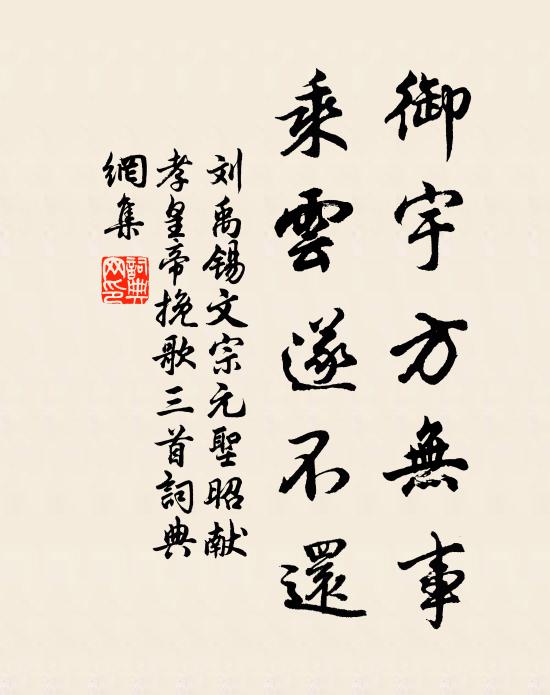 御宇方無事
乘雲遂不還
刘禹锡文宗元聖昭献
孝皇帝挽歌三首詞典
網集
詞典網印